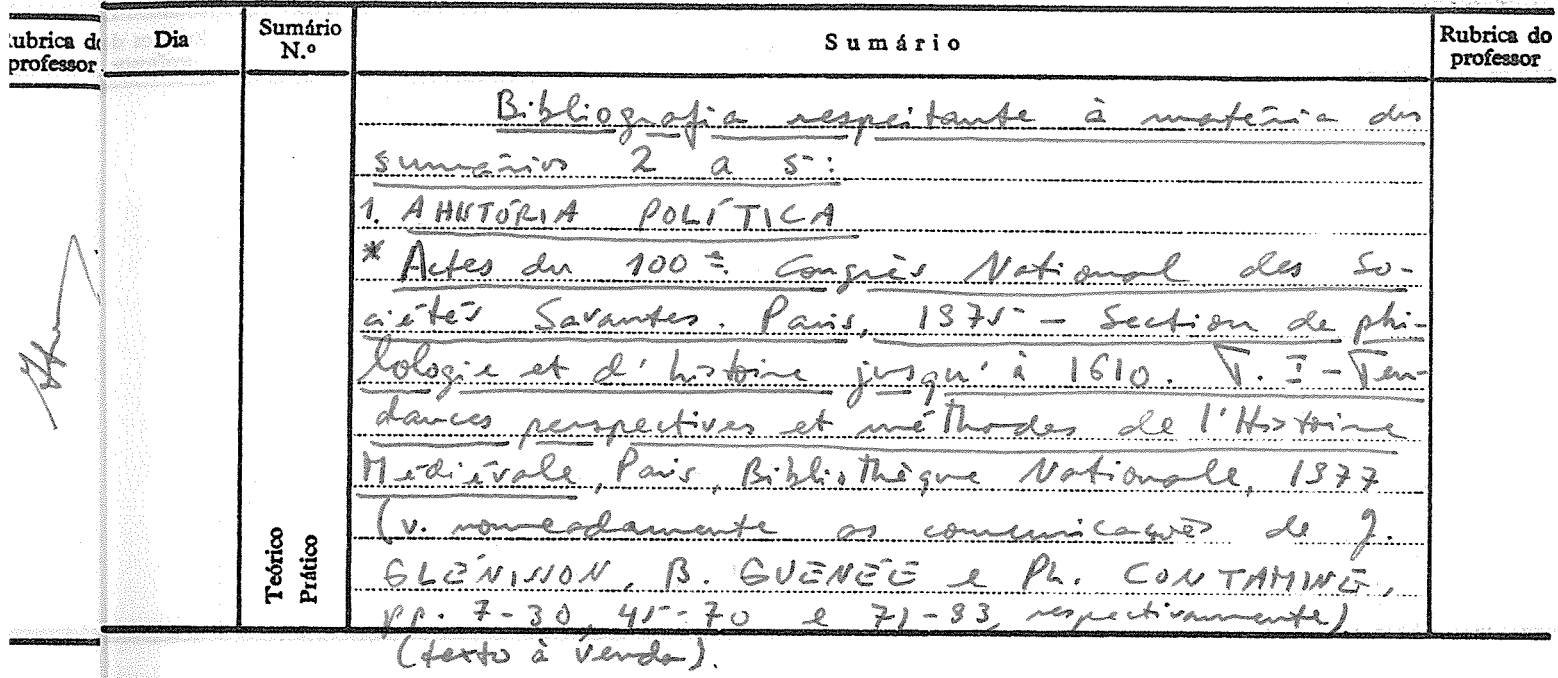 Rubrica do professor
Dia
Sumário N.º
Sumário
Rubrica do professor
Bibliografia respeitante à matéria dos
sumários 2 a 5:
1. A HISTÓRIA POLÍTICA
* Actes du 100e. Congrès National des So-
ciétés Savantes. Paris, 1975 - Section de phi-
lologie et d'histoire jusqu'à 1610. T. I - Ten-
dances perspectives et méthodes de l'Histoire
Médiévale, Paris, Bibliothèque Nationale, 1977
(v. nomeadamente as comunicações de J.
GLÉNISSON, B. GUENÉE e Ph. CONTAMINE,
pp. 7-30, 45-70 e 71-93, respectivamente)
(texto à venda).
Teórico
Prático